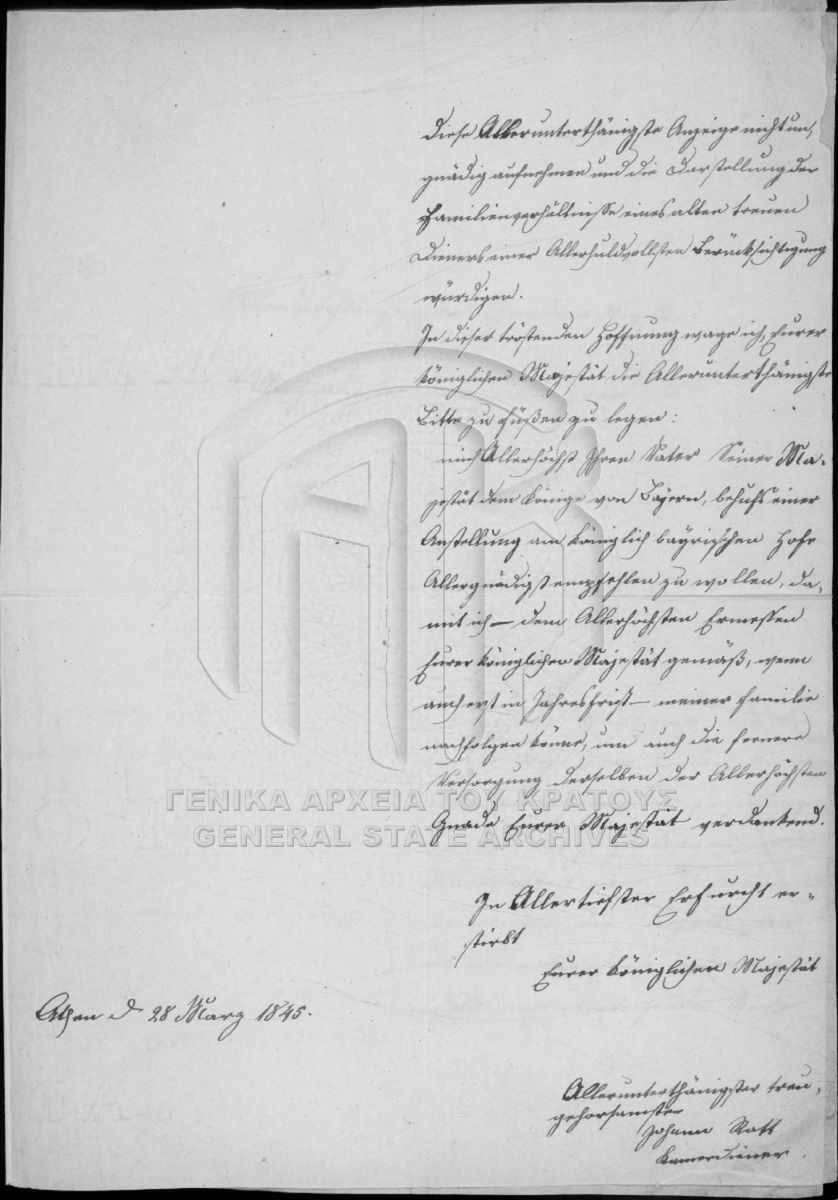 diese Allerunterthänigste Anzeige nicht un,
gnädig aufnehmen und die Darstellung der
Familienverhältnisse eines alten treuen
Dieners einer Allerhuldvollsten Berücksichtigung
würdigen.
In dieser tröstenden Hoffnung wage ich, Eurer
Königlichen Majestät die Allerunterthänigste
Bitte zu Füßen zu legen:
mich Allerhöchst Ihren Vater Seiner Ma-
jestät dem Könige von Bayern, behufs einer
Anstellung am Königlich bayrischen Hofe
Allergnädigst empfehlen zu wollen, da-
mit ich – dem Allerhöchsten Ermessen
Eurer Königlichen Majestät gemäß, wenn
auch erst in Jahresfrist – meiner Familie
nachfolgen könne, um auch die fernere
Versorgung derselben der Allerhöchsten
Gnade Eurer Majestät verdankend.
In Allertiefster Erfurcht er-
stirbt
Eurer Königlichen Majestät
Athen d 28 Marz 1845.
Allerunterthänigster treu-
gehorsamster
Johann Rott
Kamerdiener.
ΓΕΝΙΚΑ ΑΡΧΕΙΑ ΤΟΥ ΚΡΑΤΟΥΣ
GENERAL STATE ARCHIVES